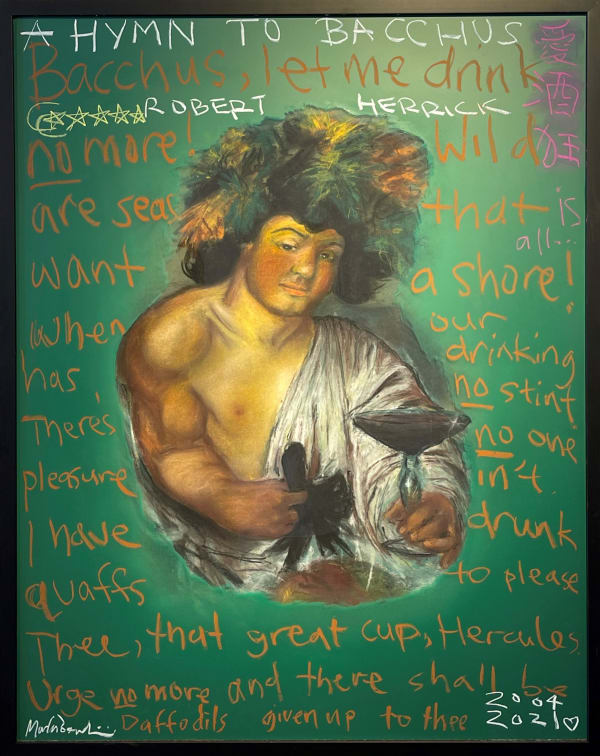 A HYMN TO BACCHUS
Bacchus, let me drink
ROBERT HERRICK
酒狂
no more! Wild
are seas that is
all...
want a shore!
When our
drinking
has no stint
There's no one
pleasure in't.
I have drunk
to please
quaffs
Thee, that great cup, Hercules
Urge no more and there shall be
Daffodils given up to thee
2004
2021♡